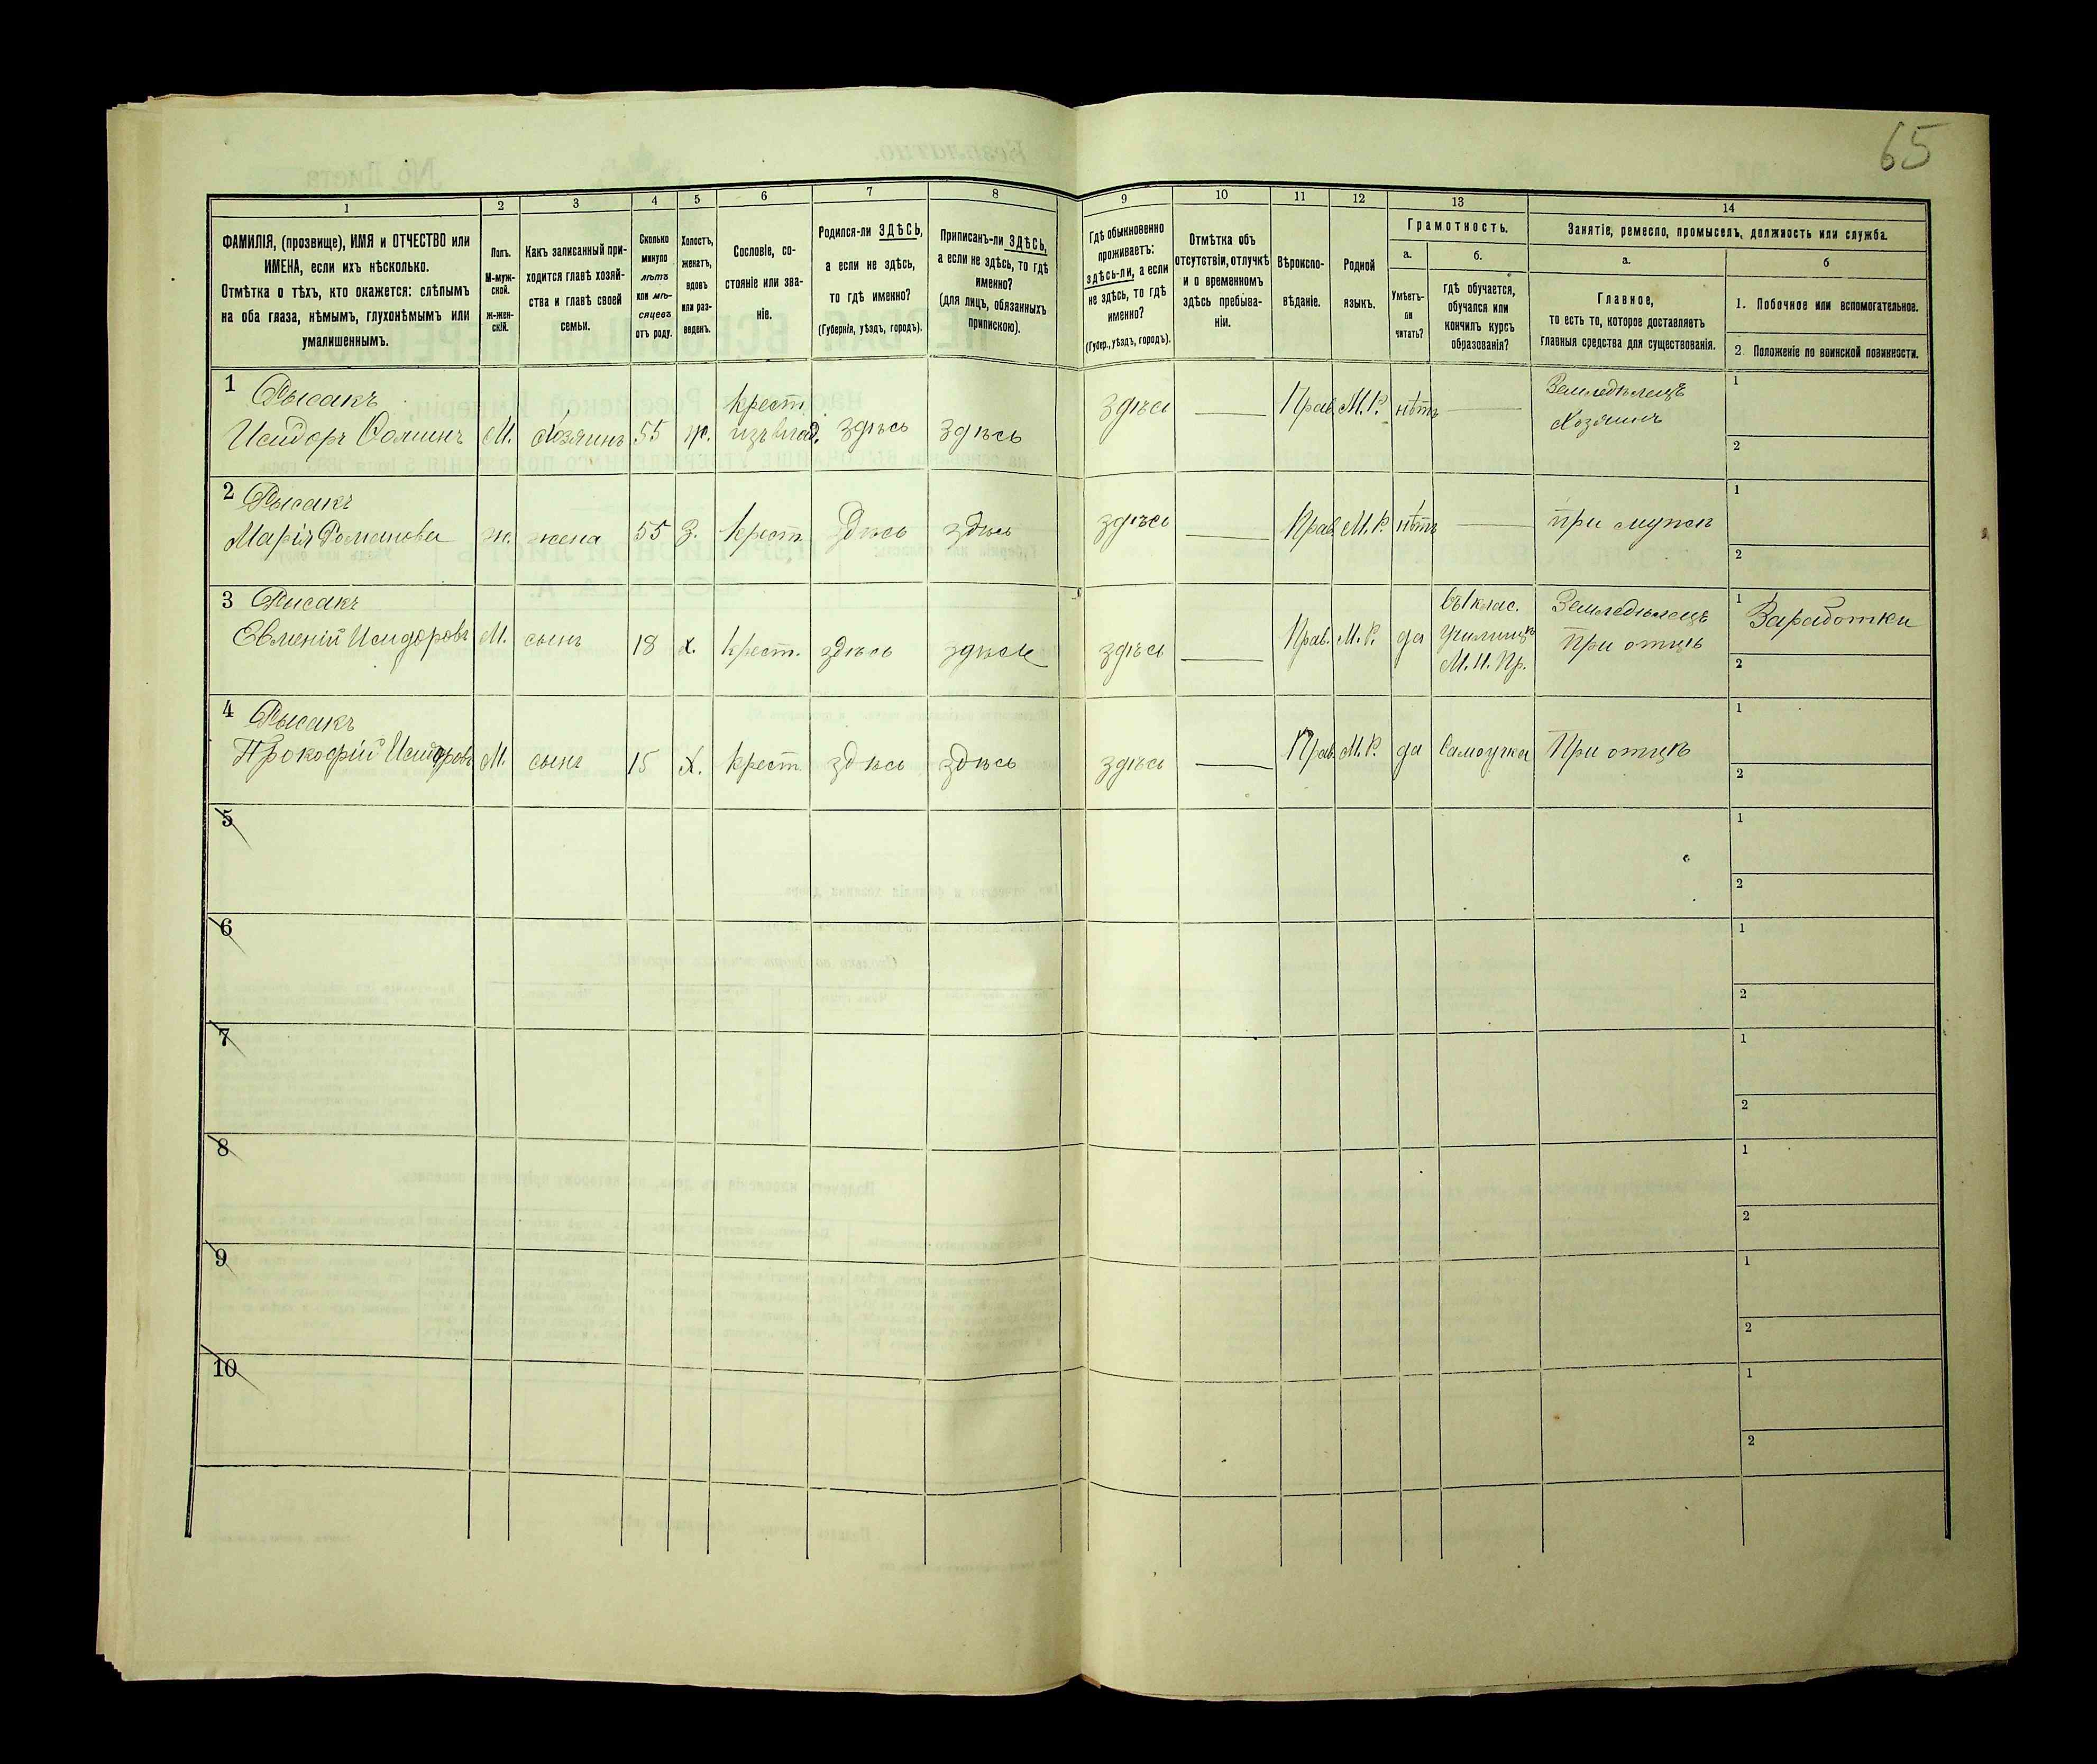 65
1
2
3
4
5
6
7
8
9
10
11
12
13
14
ФАМИЛІЯ, (прозвище), ИМЯ и ОТЧЕСТВО или
ИМЕНА, если ихъ нѣсколько.
Отмѣтка о тѣхъ, кто окажется: слѣпымъ
на оба глаза, нѣмымъ, глухонѣмымъ или
умалишеннымъ.
Полъ.
М-муж-
ской.
ж-жен-
скій.
Какъ записанный при-
ходится главѣ хозяй-
ства и главѣ своей
семьи.
Сколько
минуло
лѣтъ
или мѣ-
сяцевъ
отъ роду.
Холостъ,
женатъ,
вдовъ
или раз-
веденъ.
Сословіе, со-
стояніе или зва-
ніе.
Родился-ли ЗДѢСЬ,
а если не здѣсь,
то гдѣ именно?
(Губернія, уѣздъ, городъ).
Приписанъ-ли ЗДѢСЬ,
а если не здѣсь, то гдѣ
именно?
(для лицъ, обязанныхъ
припискою).
Гдѣ обыкновенно
проживаетъ:
здѣсь-ли, а если
не здѣсь, то гдѣ
именно?
(Губер., уѣздъ, городъ).
Отмѣтка объ
отсутствіи, отлучкѣ
и о временномъ
здѣсь пребыва-
ніи.
Вѣроиспо-
вѣданіе.
Родной
языкъ.
Грамотность.
а.
Умѣетъ-
ли
читать?
б.
гдѣ обучается,
обучался или
кончилъ курсъ
образованія?
Занятіе, ремесло, промыселъ, должность или служба.
а.
Главное,
то есть то, которое доставляетъ
главныя средства для существованія.
б
1. Побочное или вспомогательное.
2. Положеніе по воинской повинности.
1 Рысакъ
Исидоръ Фоминъ М. Хозяинъ 55 ж. Крест. изъ влад. здѣсь здѣсь здѣсь — Прав. М.Р. нѣтъ — Земледѣлецъ
Хозяинъ
1
2
2 Рысакъ
Марія Романова ж. жена 55 З. Крест. здѣсь здѣсь здѣсь — Прав. М.Р. нѣтъ — при мужѣ
1
2
3 Рысакъ
Евменій Исидоровъ М. сынъ 18 х. Крест. здѣсь здѣсь здѣсь — Прав. М.Р. да въ 1 клас.
училищѣ
М.Н.Пр.
Земледѣлецъ
При отцѣ
1 Заработки
2
4 Рысакъ
Прокофій Исидоровъ М. сынъ 15 х. Крест. здѣсь здѣсь здѣсь — Прав. М.Р. да Самоучка При отцѣ
1
2
5
1
2
6
1
2
7
1
2
8
1
2
9
1
2
10
1
2